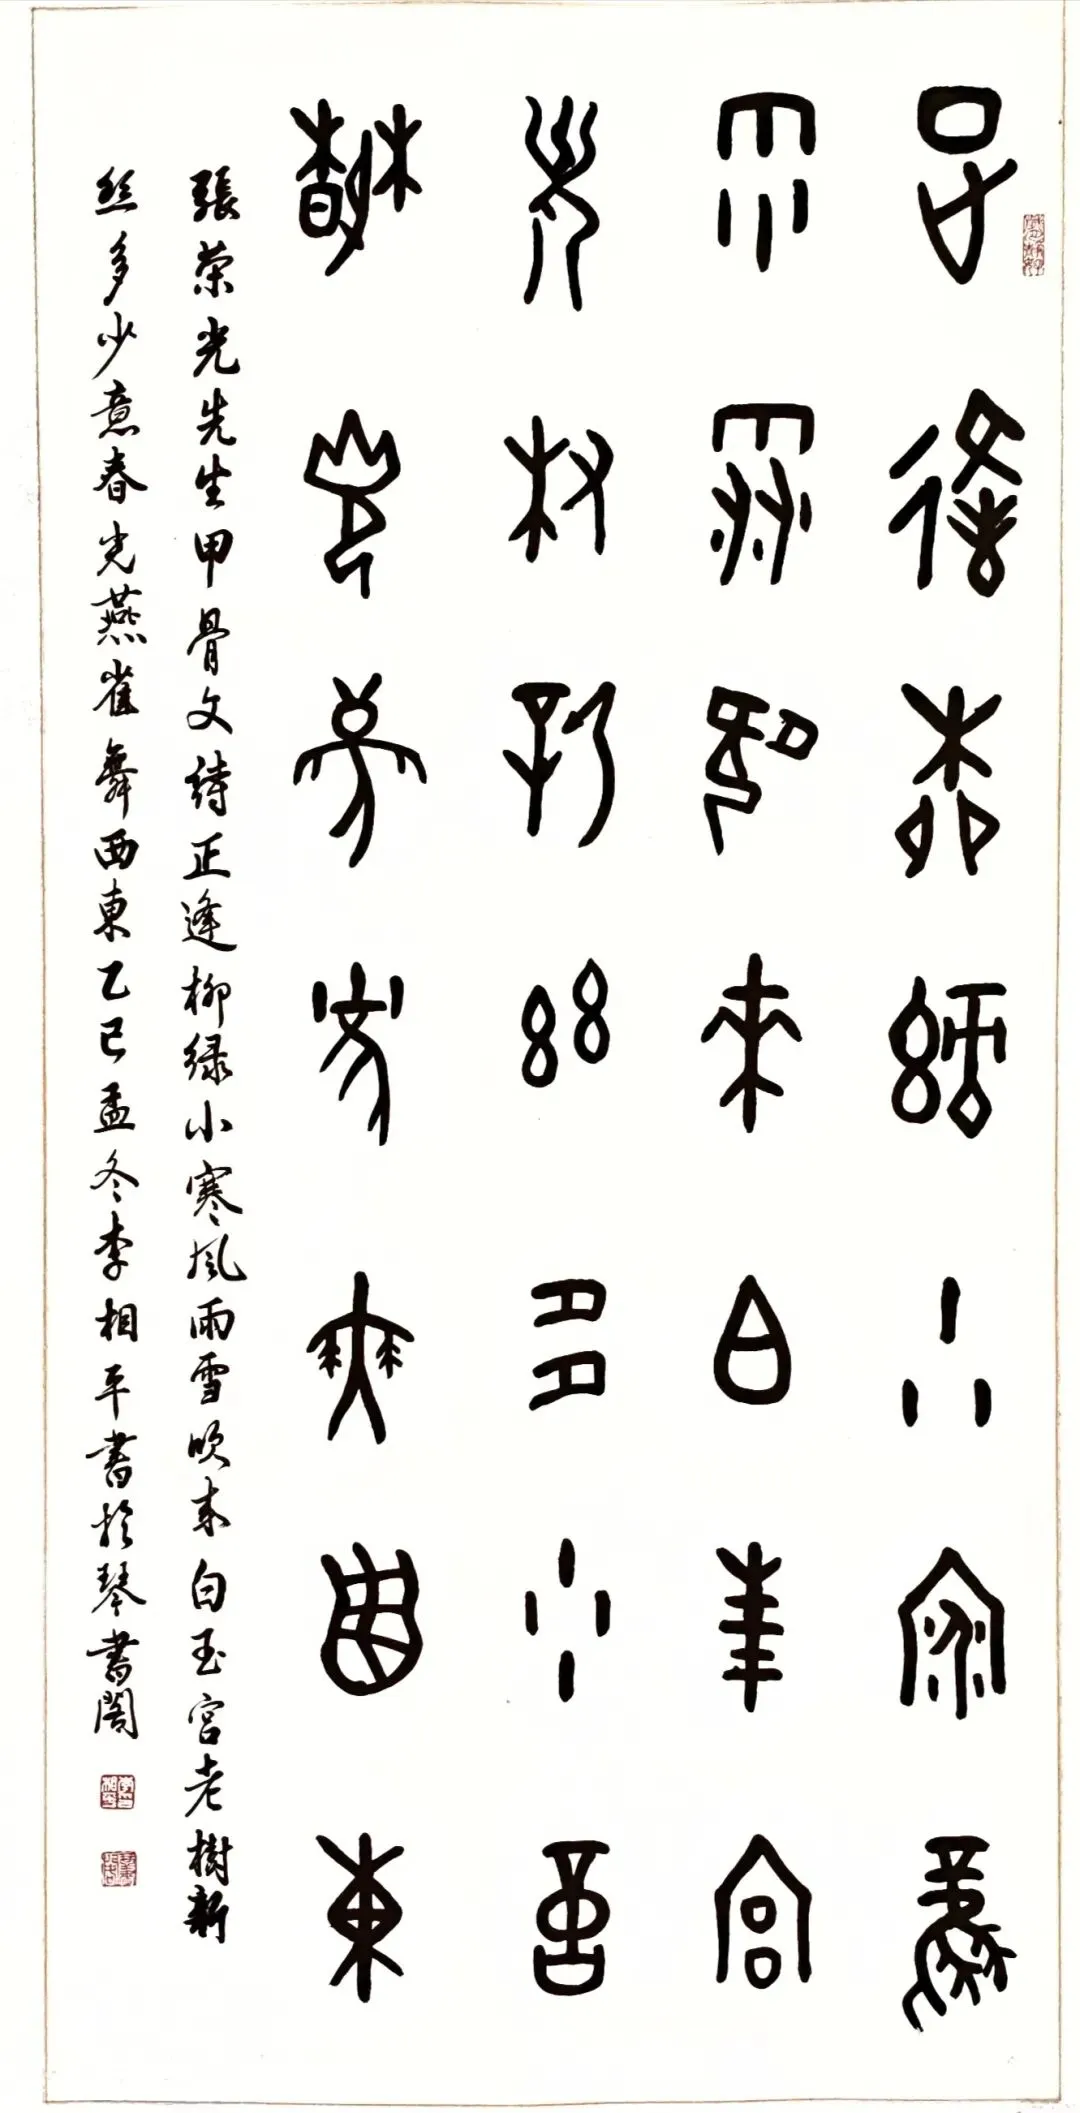 正逢柳绿小寒風
雨雪吹来白玉宫
老樹新絲多少意
春光燕雀舞西東
張荣光先生甲骨文詩正逢柳绿小寒風雨雪吹来白玉宫老樹新
丝多少意春光燕雀舞西東乙巳孟冬李相平書於琴書閣